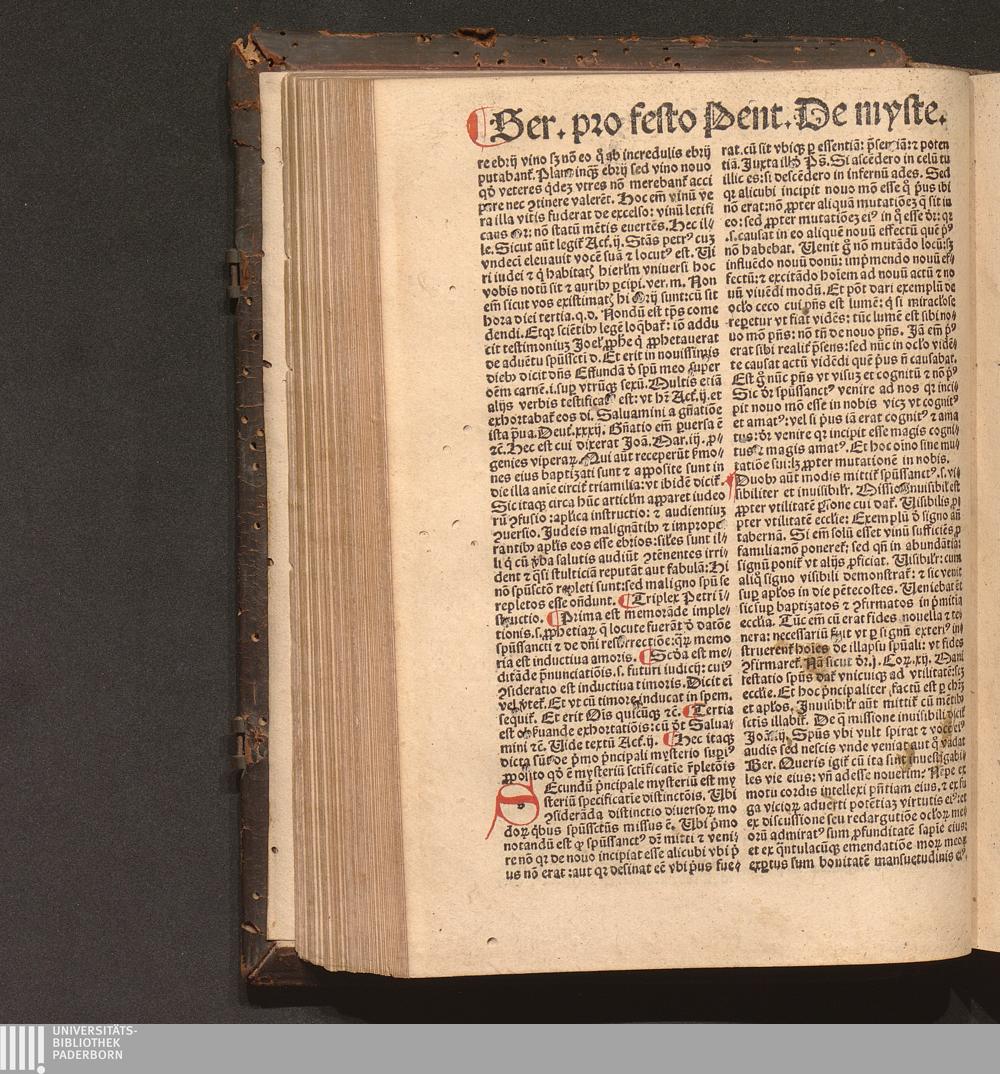 Ser. pro festo Pent. De myste.
re ebrij vino sz nō eo q̄ ab incredulis ebrij
putabant̄. Plani inqꝫ ebrij sed vino nouo
qd̄ veteres qdez vtres nō merebant̄ acci
pere nec ꝯtinere valerēt. Hoc em̄ vinū ve
ra illa vitis fuderat de excelso: vinū letifi
cans cor: nō statū mētis euertēs. Hec il-
le. Sicut aūt legit̄ Act̄. ij. Stās petrꝰ cuz
vndeci eleuauit vocē suā ⁊ locutꝰ est. Ui
ri iudei ⁊ q̇ habitatꝫ hierl̄m vniuersi hoc
vobis notū sit ⁊ auribꝰ ꝑcipi. ver. m. Non
em̄ sicut vos existimatꝫ hi ebrij sunt: cū sit
hora diei tertia. q. d. Nondū est tp̄s come
dendi. Etqꝛ sciētibꝰ legē loq̄bat̄: iō addu
cit testimoniuz Joel ꝓphe q̇ ꝓphetauerat
de aduētu spūssctī d. Et erit in nouissimis
diebꝰ dicit dn̄s Effundā d̄ spū meo super
oēm carnē. i. suꝑ vtrūqꝫ sexū. Multis etiā
alijs verbis testificatꝰ est: vt hr̄ Act̄. ij. et
exhortabat̄ eos dī. Saluamini a gn̄atiōe
ista p̄ua. Deut̄. xxxij. Gn̄atio em̄ ꝑuersa ē
⁊c̄. Hec est cui dixerat Joā. Mar. iij. ꝓ-
genies viperaꝝ. Qui aūt receperūt ẜmo-
nes eius baptizati sunt ⁊ apposite sunt in
die illa anīe circit̄ triamilia: vt ibidē dicit̄.
Sic itaqꝫ circa hūc articl̄m apparet iudeo
rū ꝯfusio: apl̄ica instructio: ⁊ audientiuz
ꝯuersio. Judeis malignātibꝰ ⁊ impropē
rantibꝰ apl̄is eos esse ebrios: sil̄es sunt il-
li q̇ cū v̄ba salutis audiūt ꝯtēnentes irri-
dent ⁊ q̇si stulticiā reputāt aut fabulā: Hi
nō spūsctō repleti sunt: sed maligno spū se
repletos esse on̄dunt. Triplex Petri ī-
structio. Prima est memorāde imple-
tionis. s. ꝓphetiaꝝ q̄ locute fuerāt d̄ datōe
spūssancti ⁊ de dn̄i resurrectiōe: q̄ꝝ memo
ria est inductiua amoris. Scd̄a est me-
ditāde p̄nunciatiōis. s. futuri iudicij: cuiꝰ
ꝯsideratio est inductiua timoris. Dicit em̄
vel vtet̄. Et vt cū timore inducat in spem.
sequit̄. Et erit Ois quicūqꝫ ⁊c̄. Tertia
est obseruande exhortatiōis: cū d̄t Salua-
mini ⁊c̄. Uide textū Act̄. ij. Hec itaqꝫ
dicta sint de p̄mo p̄ncipali mysterio supiꝰ
ꝓposito qd̄ ē mysteriū sctificatiōe r̄pletōis
Secundū p̄ncipale mysteriū est my
steriū specificatiōe distinctōis. Ubi
ꝯsideranda distinctio diuersoꝝ mo
doꝝ q̇bus spūssctūs missus ē. Ubi p̄mo
notandū est ꝙ spūssanctꝰ dr̄ mitti ⁊ veni-
re nō qꝛ de nouo incipiat esse alicubi vbi p̄
us nō erat: aut qꝛ desinat eē vbi p̄us fue-
rat. cū sit vbiqꝫ ꝑ essentiā: p̄sentiā: ⁊ poten
tiā. Juxta illd̄ Ps̄. Si ascēdero in celū tu
illic es: si descēdero in infernū ades. Sed
qꝛ alicubi incipit nouo mō esse q̇ p̄us ibi
nō erat: nō ꝓpter aliquā mutatiōez q̄ sit in
eo: sed ꝓpter mutatiōez eiꝰ in q̄ esse dr̄: qꝛ
.s. causat in eo aliquē nouū effectū quē pꝰ
nō habebat. Uenit g̊ nō mutādo locū: sz
influēdo nouū donū: imp̄mendo nouū ef-
fectū: ⁊ excitādo hoīem ad nouū actū ⁊ no
uū viuēdi modū. Et pōt dari exemplū de
oclō ceco cui p̄ns est lumē: q̇ si miraclōse
repetur vt fiat vidēs: tūc lumē est sibi no-
uo mō p̄ns: nō tn̄ de nouo p̄ns. Jā em̄ pꝰ
erat sibi realit̄ p̄sens: sed nūc in oclō vidē-
te causat actū vidēdi quē p̄us n̄ causabat.
Est g̊ nūc p̄ns vt visuz et cognitū ⁊ nō pꝰ
Sic dr̄ spūssanctꝰ venire ad nos qꝛ inci-
pit nouo mō esse in nobis vicz vt cognitꝰ
et amatꝰ: vel si p̄us iā erat cognitꝰ ⁊ ama
tus: dr̄ venire qꝛ incipit esse magis cogni-
tus ⁊ magis amatꝰ. Et hoc oīno sine mu-
tatiōe sui: lz ꝓpter mutationē in nobis.
Duobꝰ aūt modis mittit̄ spūssanctꝰ. s. vi-
sibiliter et inuisibilr̄. Missio inuisibil̄ est
ꝓpter vtilitatē ꝑsone cui dat̄. Uisibilis ꝓ-
pter vtilitatē eccl̄ie: Exemplū d̄ signo an̄
tabernā. Si em̄ solū esset vinū sufficiēs ꝓ
familia: nō poneret̄; sed qn̄ in abundātia:
signū ponit̄ vt alijs ꝓficiat. Uisibilr̄: cum
aliq̇ signo visibili demonstrat̄: ⁊ sic venit
suꝑ apl̄os in die pētecostes. Ueniebat ēt
sic suꝑ baptizatos ⁊ ꝯfirmatos in p̄mitia
eccl̄ia. Tūc em̄ cū erat fides nouella ⁊ te-
nera: necessariū fuit vt ꝑ signū exteriꝰ in-
struerent̄ hoīes de illapsu spūali: vt fides
ꝯfirmaret̄. Nā sicut dr̄. j. Coꝝ. xij. Mani
festatio spūs dat̄ vnicuiqꝫ ad vtilitatē: scz
eccl̄ie. Et hoc p̄ncipaliter factū est ꝑ chꝝ
et apl̄os. Inuisibilr̄ aūt mittit̄ cū mētibꝰ
sctis illabit̄. De q̄ missione inuisibili dicit̄
Joā. iij. Spūs vbi vult spirat ⁊ vocē eiꝰ
audis sed nescis vnde veniat aut q̊ vadat
Ber. Queris igit̄ cū ita sint inuestigabi-
les vie eius: vn̄ adesse nouerim: Nēpe ex
motu cordis intellexi p̄ntiam eius. ⁊ ex fu
ga vicioꝝ aduerti potētiaz virtutis eiꝰ: et
ex discussione seu redargutiōe ocl̄oꝝ me-
orū admiratꝰ sum ꝓfunditatē sapīe eius:
et ex q̇ntulacūqꝫ emendatiōe moꝝ meoꝝ
exꝑtus sum bonitatē mansuetudinis eiꝰ.
UNIVERSITÄTS-
BIBLIOTHEK
PADERBORN